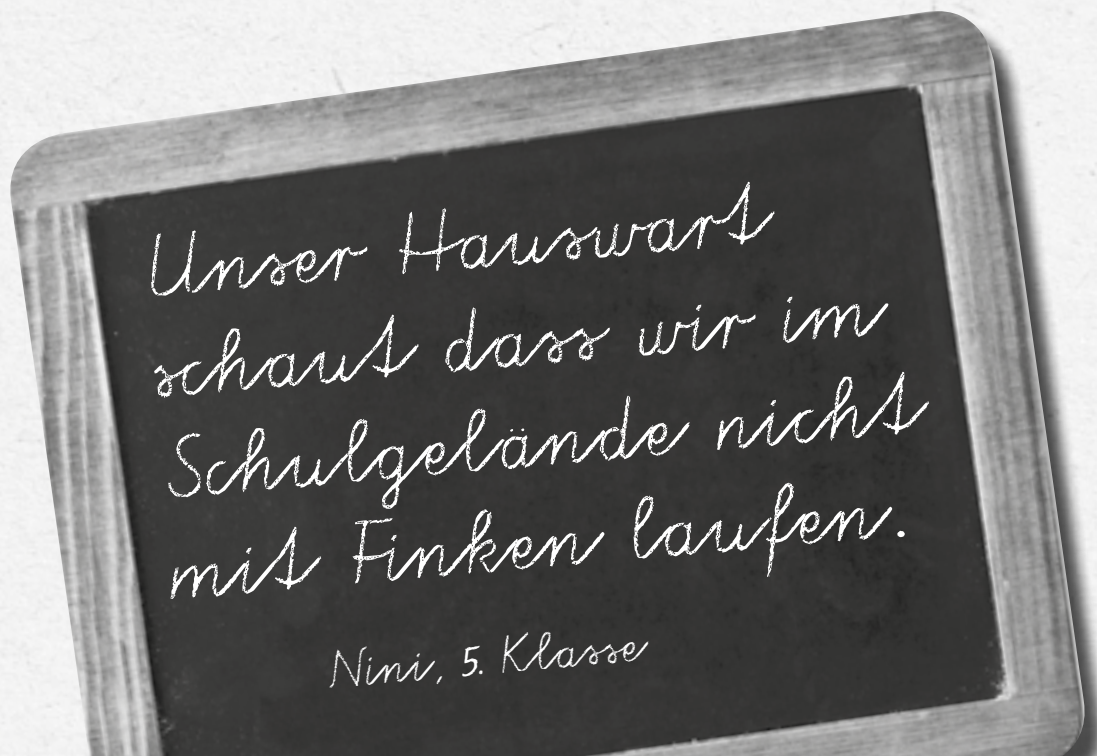 Unser Hauswart
schaut dass wir im
Schulgelände nicht
mit Finken laufen.
Nini, 5. Klasse